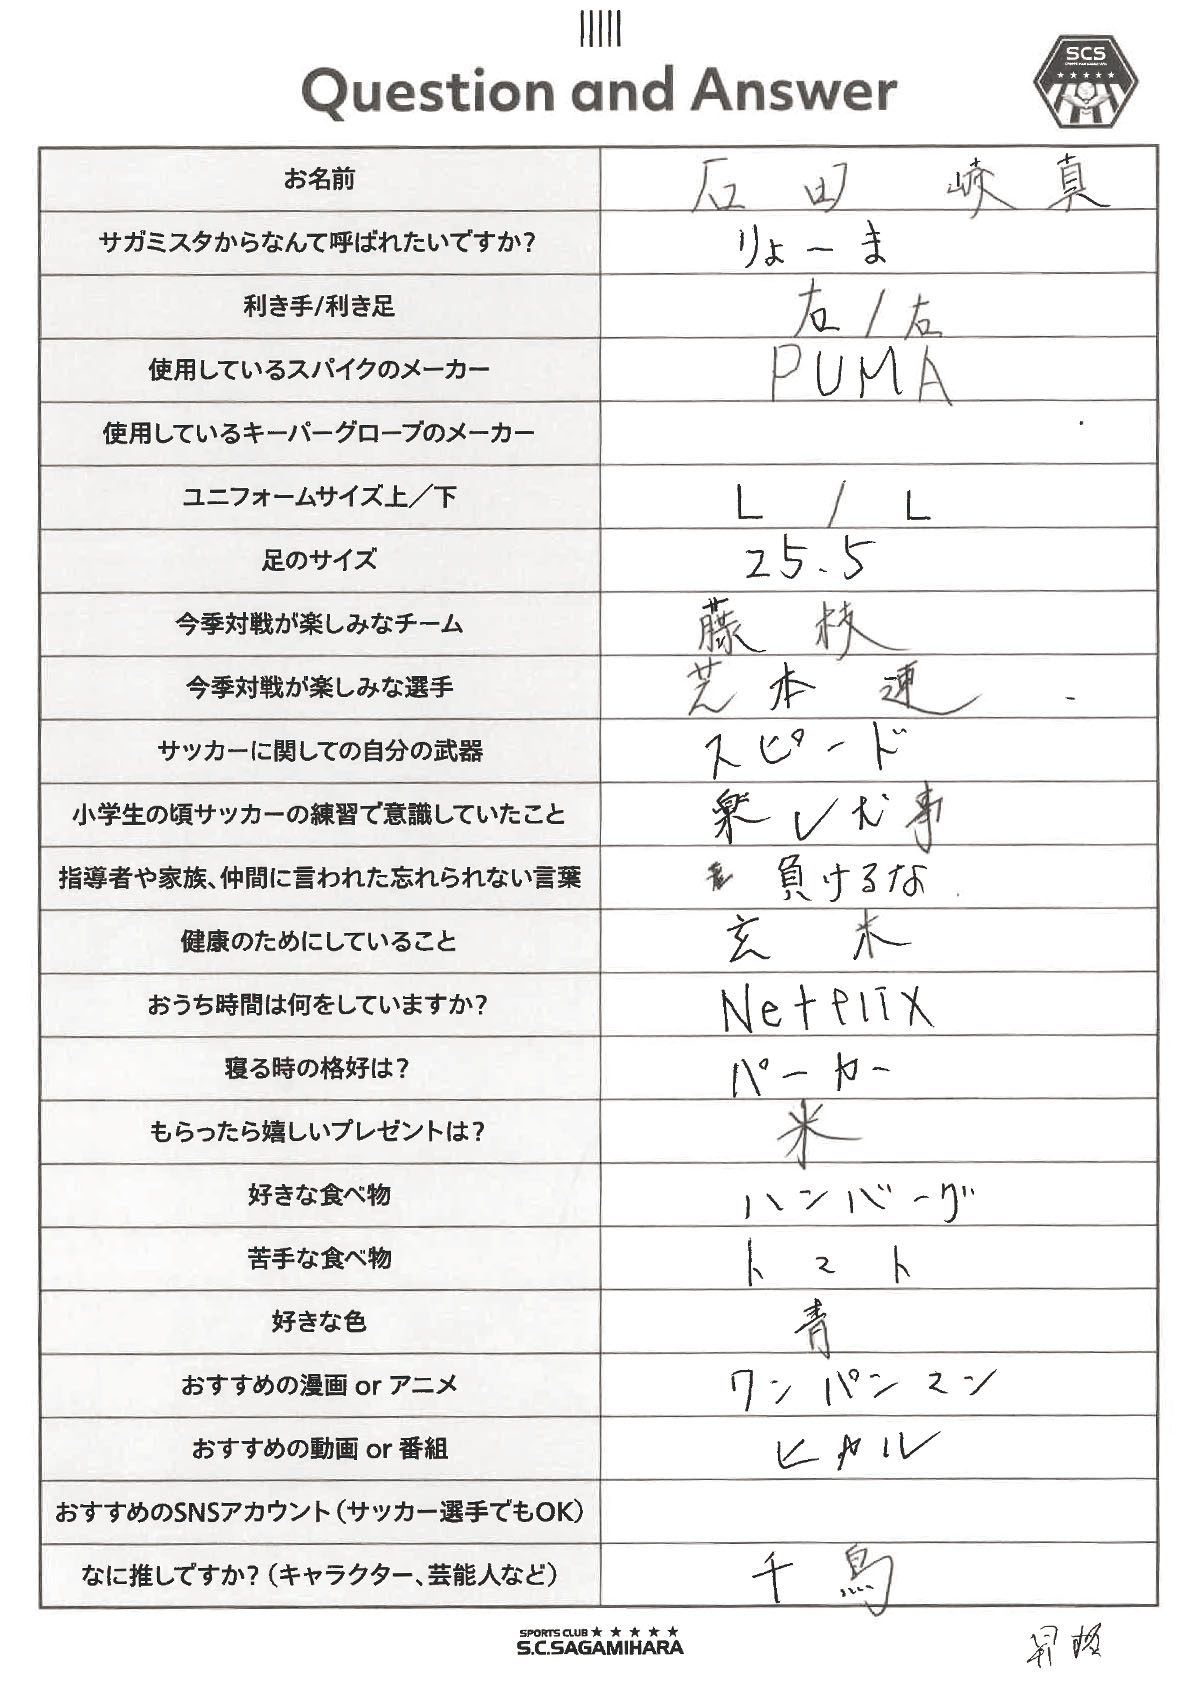 Question and Answer
SCS
お名前 石田 崚真
サガミスタからなんて呼ばれたいですか？ りょーま
利き手/利き足 右 / 右
使用しているスパイクのメーカー PUMA
使用しているキーパーグローブのメーカー
ユニフォームサイズ上／下 L / L
足のサイズ 25.5
今季対戦が楽しみなチーム 藤枝
今季対戦が楽しみな選手 芝本 連
サッカーに関しての自分の武器 スピード
小学生の頃サッカーの練習で意識していたこと 楽しむ事
指導者や家族、仲間に言われた忘れられない言葉 負けるな
健康のためにしていること 玄米
おうち時間は何をしていますか？ Netflix
寝る時の格好は？ パーカー
もらったら嬉しいプレゼントは？ 米
好きな食べ物 ハンバーグ
苦手な食べ物 トマト
好きな色 青
おすすめの漫画 or アニメ ワンパンマン
おすすめの動画 or 番組 ヒカル
おすすめのSNSアカウント（サッカー選手でもOK）
なに推しですか？（キャラクター、芸能人など） 千鳥
SPORTS CLUB ★ ★ ★ ★ ★
S.C.SAGAMIHARA